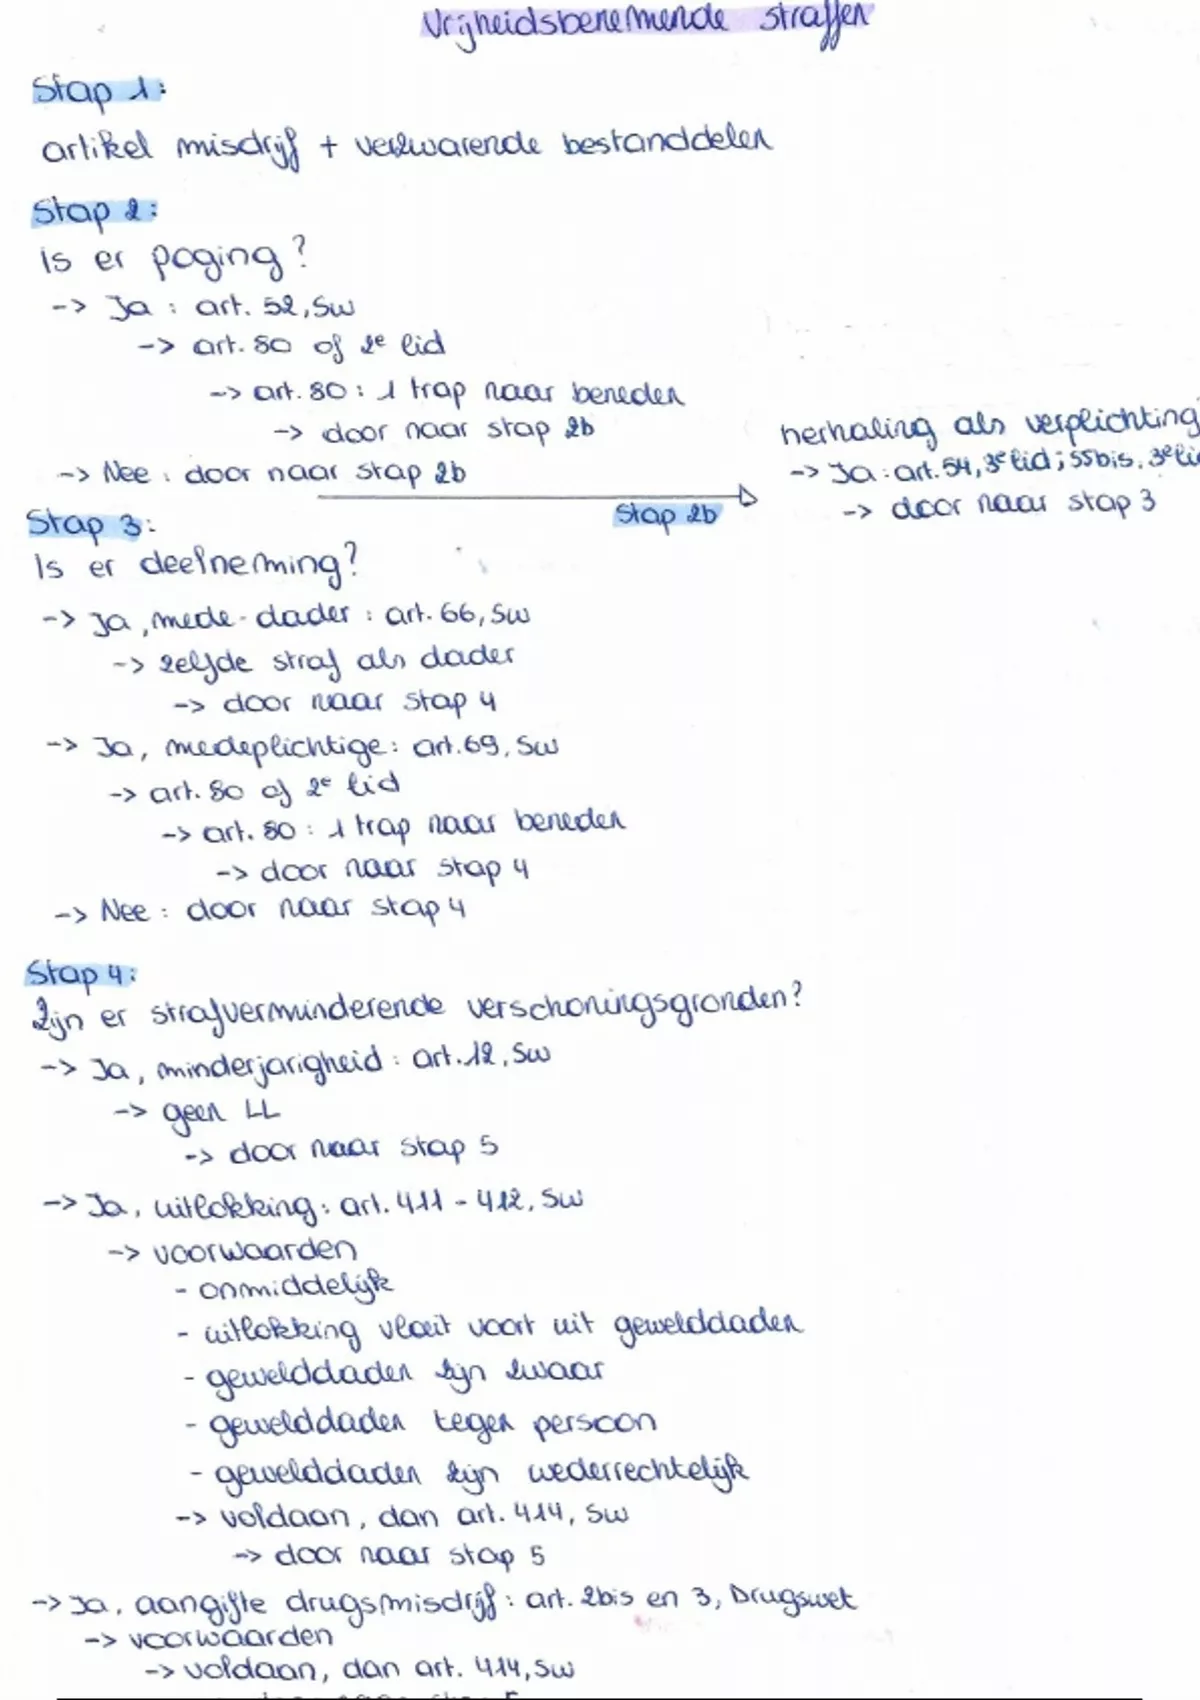 Vrijheidsbenemende straffen
Stap 1:
artikel misdrijf + verzwarende bestanddelen
Stap 2:
Is er poging?
-> Ja : art. 52, Sw
-> art. 80 of 2e lid
-> art. 80 : 1 trap naar beneden
-> door naar stap 2b
-> Nee : door naar stap 2b
Stap 2b
herhaling als verplichting
-> Ja : art. 54, 3e lid ; 55bis, 3e li
-> door naar stap 3
Stap 3:
Is er deelneming?
-> Ja, mede-dader : art. 66, Sw
-> zelfde straf als dader
-> door naar stap 4
-> Ja, medeplichtige : art. 69, Sw
-> art. 80 of 2e lid
-> art. 80 : 1 trap naar beneden
-> door naar stap 4
-> Nee : door naar stap 4
Stap 4:
Zijn er strafverminderende verschoningsgronden?
-> Ja, minderjarigheid : art. 12, Sw
-> geen LL
-> door naar stap 5
-> Ja, uitlokking : art. 411 - 412, Sw
-> voorwaarden
- onmiddelijk
- uitlokking vloeit voort uit gewelddaden
- gewelddaden zijn zwaar
- gewelddaden tegen persoon
- gewelddaden zijn wederrechtelijk
-> voldaan, dan art. 414, Sw
-> door naar stap 5
-> Ja, aangifte drugsmisdrijf : art. 2bis en 3, Drugswet
-> voorwaarden
-> voldaan, dan art. 414, Sw